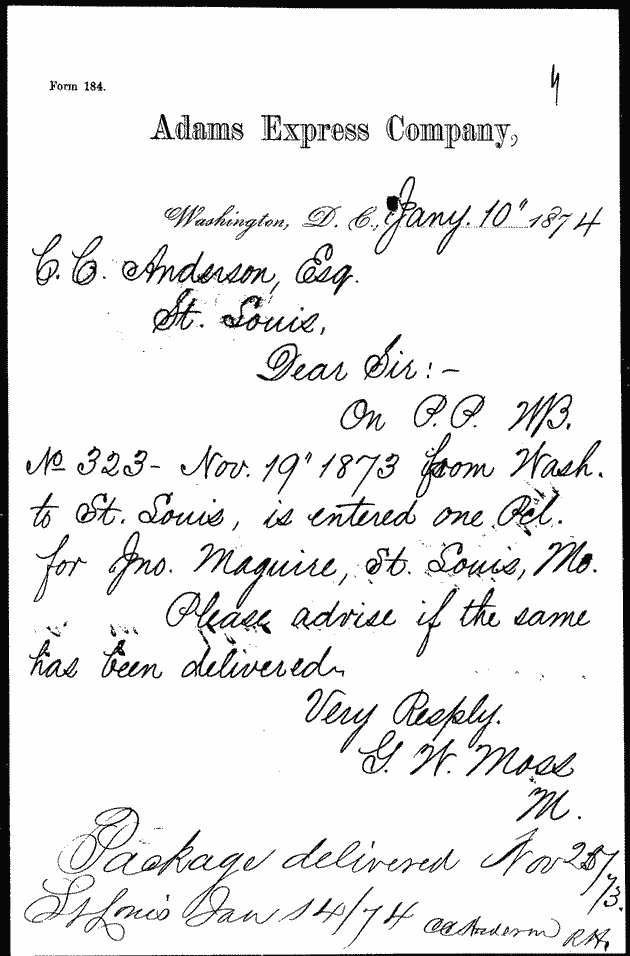 Form 184.
4
Adams Express Company,
Washington, D. C., Jany. 10" 1874
C. C. Anderson, Esq.
St. Louis,
Dear Sir:—
On P.P. WB.
No 323- Nov. 19" 1873 from Wash.
to St. Louis, is entered one Pcl.
for Jno. Maguire, St. Louis, Mo.
Please advise if the same
has been delivered.
Very Resply.
G. W. Moss
M.
Package delivered Nov /73.
St Louis Jan 14/74 CC Anderson
R.H.